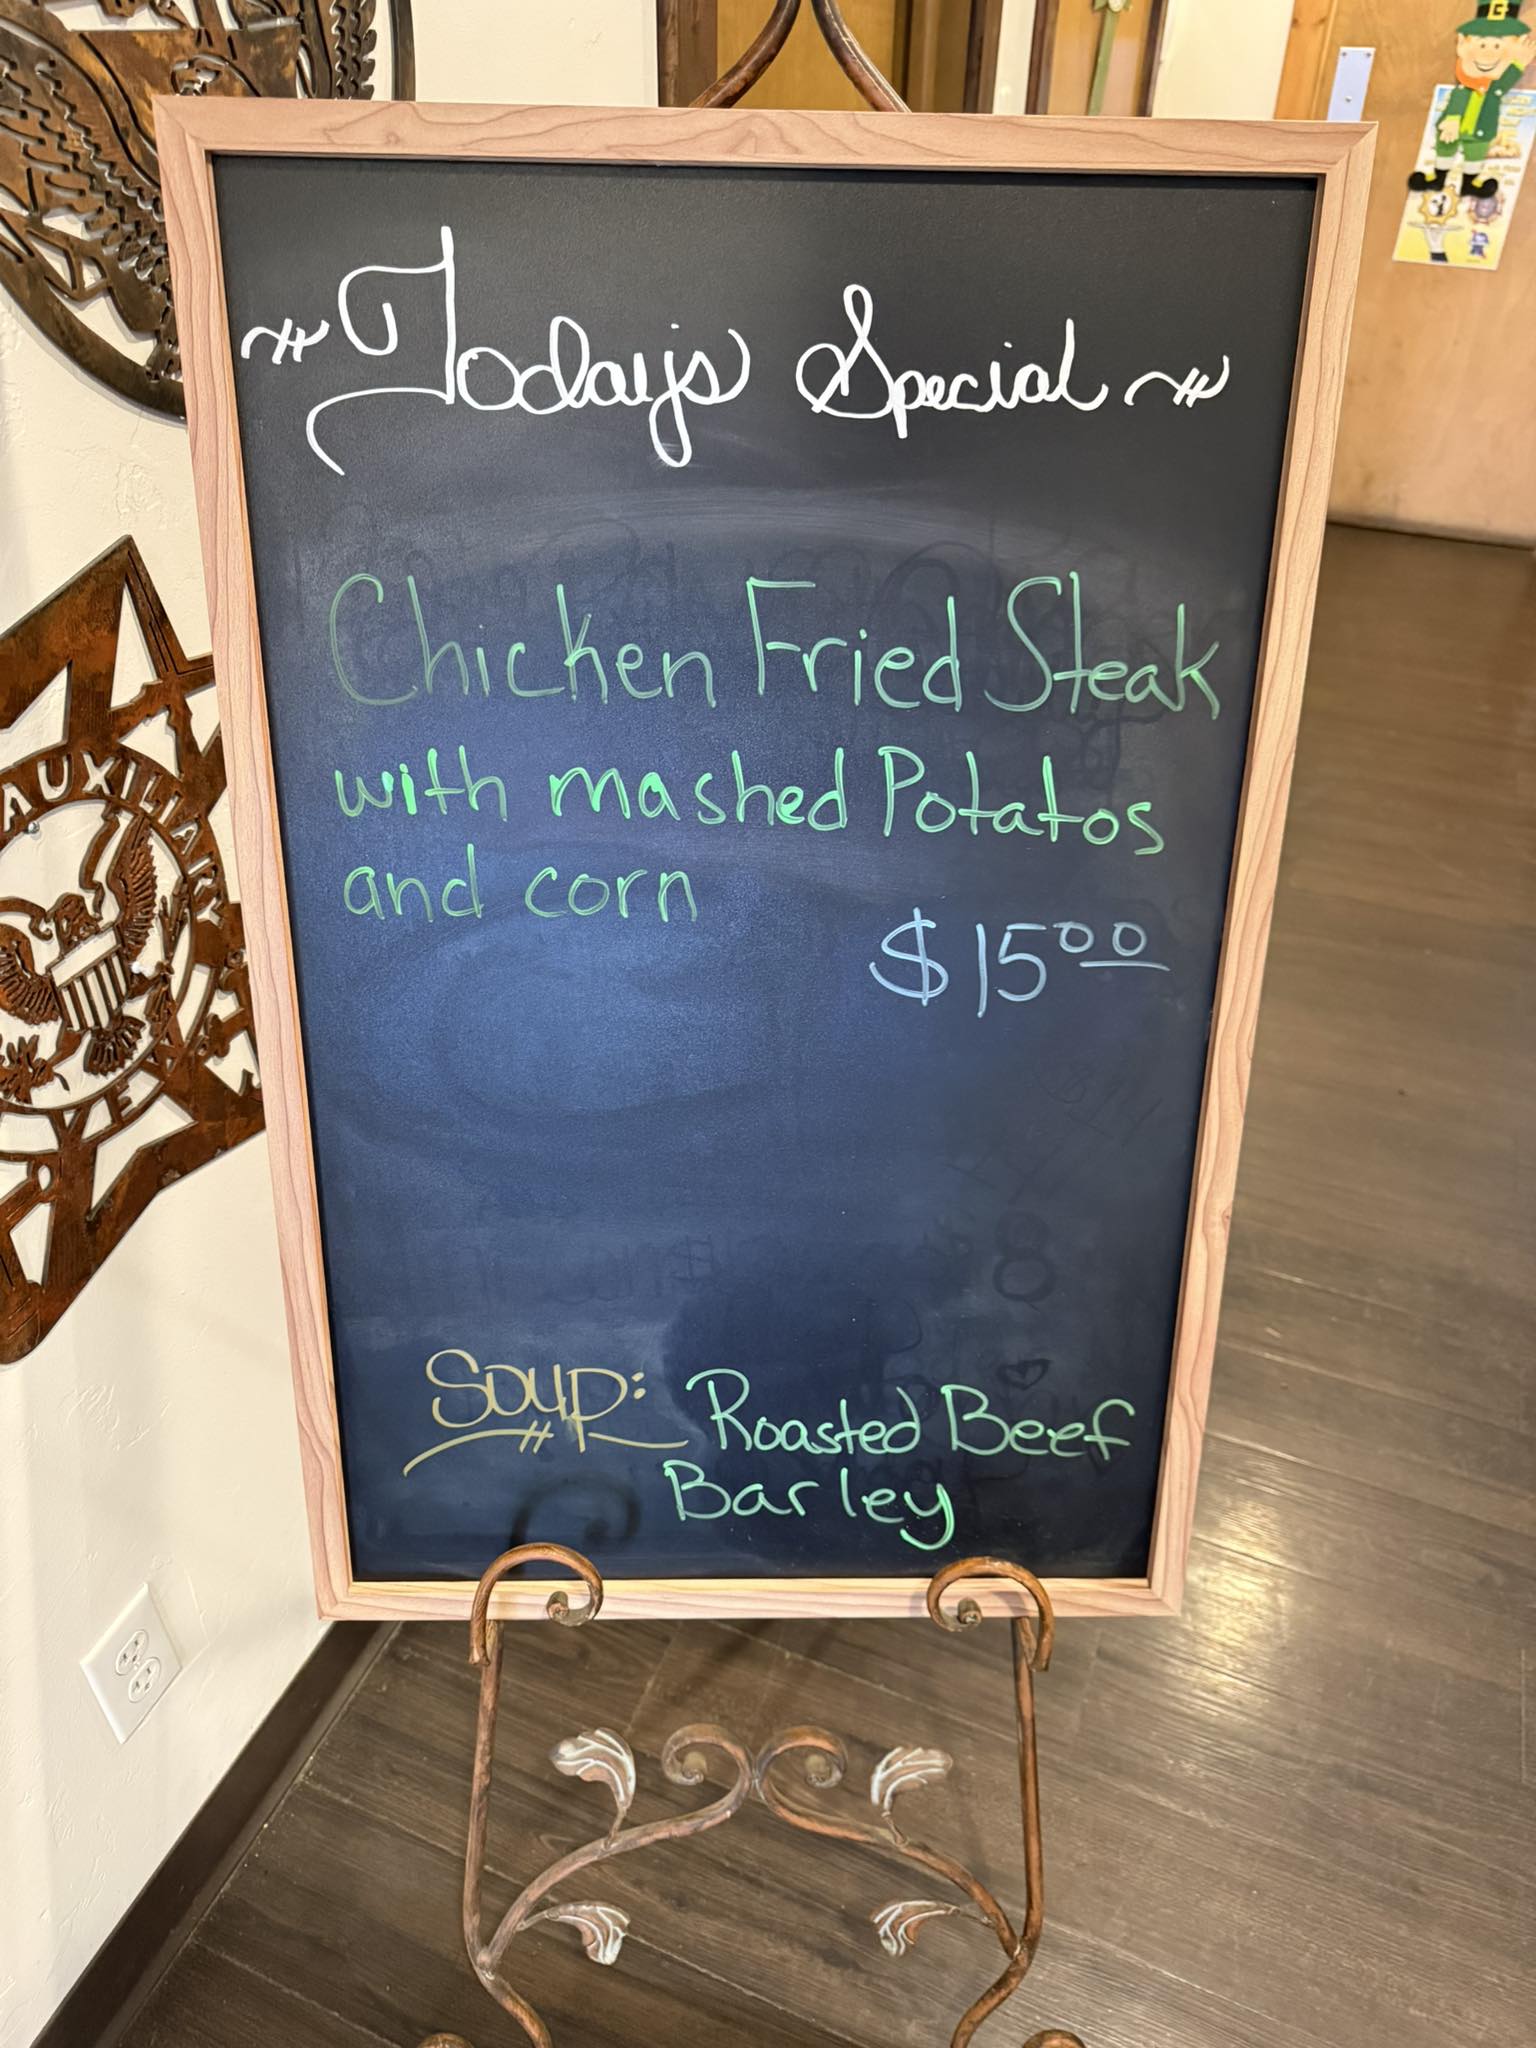 Today's Special
Chicken Fried Steak
with mashed Potatos
and corn
$15.00
Soup: Roasted Beef
Barley
A. AUXILIARY
VE